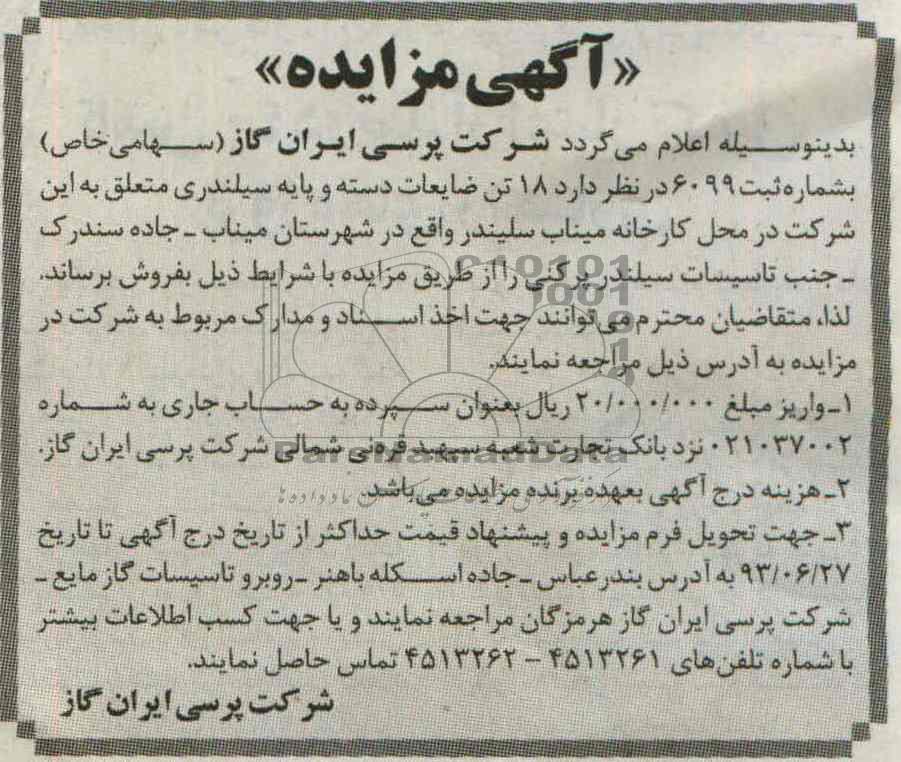 «آگهی مزایده»
بدینوسیله اعلام می‌گردد شرکت پرسی ایران گاز (سهامی خاص)
بشماره ثبت ۶۰۹۹ در نظر دارد ۱۸ تن ضایعات دسته و پایه سیلندری متعلق به این
شرکت در محل کارخانه میناب سلیندر واقع در شهرستان میناب ـ جاده سندرک
ـ جنب تاسیسات سیلندر پرکنی را از طریق مزایده با شرایط ذیل بفروش برساند.
لذا، متقاضیان محترم می‌توانند جهت اخذ اسناد و مدارک مربوط به شرکت در
مزایده به آدرس ذیل مراجعه نمایند.
۱ـ واریز مبلغ ۲۰/۰۰۰/۰۰۰ ریال بعنوان سپرده به حساب جاری به شماره
۰۲۱۰۳۷۰۰۲ نزد بانک تجارت شعبه سپهبد قرنی شمالی شرکت پرسی ایران گاز.
۲ـ هزینه درج آگهی بعهده برنده مزایده می‌باشد
۳ـ جهت تحویل فرم مزایده و پیشنهاد قیمت حداکثر از تاریخ درج آگهی تا تاریخ
۹۳/۰۶/۲۷ به آدرس بندرعباس ـ جاده اسکله باهنر ـ روبرو تاسیسات گاز مایع ـ
شرکت پرسی ایران گاز هرمزگان مراجعه نمایند و یا جهت کسب اطلاعات بیشتر
با شماره تلفن‌های ۴۵۱۳۲۶۱ – ۴۵۱۳۲۶۲ تماس حاصل نمایند.
شرکت پرسی ایران گاز
ParsNamadData